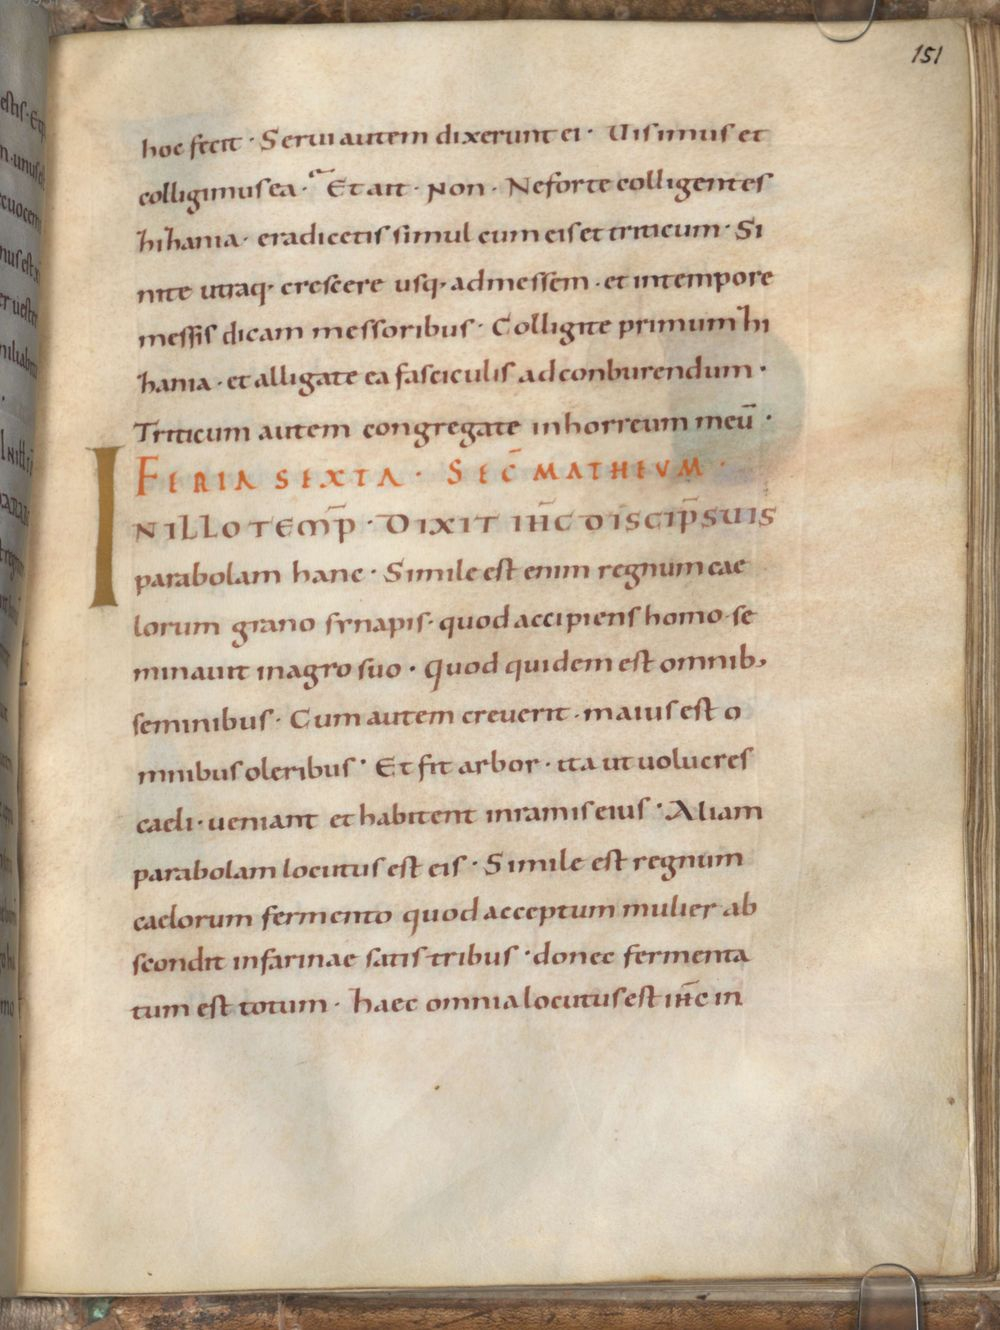 151
hoc fecit · Serui autem dixerunt ei · Uis imus et
colligimus ea · Et ait · Non · Ne forte colligentes
hihania · eradicetis simul cum eis et triticum · Si
nite utraq· crescere usq· ad messem · et in tempore
messis dicam messoribus · Colligite primum hi
hania · et alligate ea fasciculis ad conburendum ·
Triticum autem congregate in horreum meū ·
FERIA SEXTA · SEC̄ MATHEUM ·
IN ILLO TEMP̄ · DIXIT IHC̄ DISCIP̄ SUIS
parabolam hanc · Simile est enim regnum cae
lorum grano synapis · quod accipiens homo se
minauit in agro suo · quod quidem est omnib;
seminibus · Cum autem creuerit · maius est o
mnibus oleribus · Et fit arbor · ita ut uolucres
caeli · ueniant et habitent in ramis eius · Aliam
parabolam locutus est eis · Simile est regnum
caelorum fermento quod acceptum mulier ab
scondit in farinae satis tribus · donec fermenta
tum est totum · haec omnia locutus est ihc̄ in